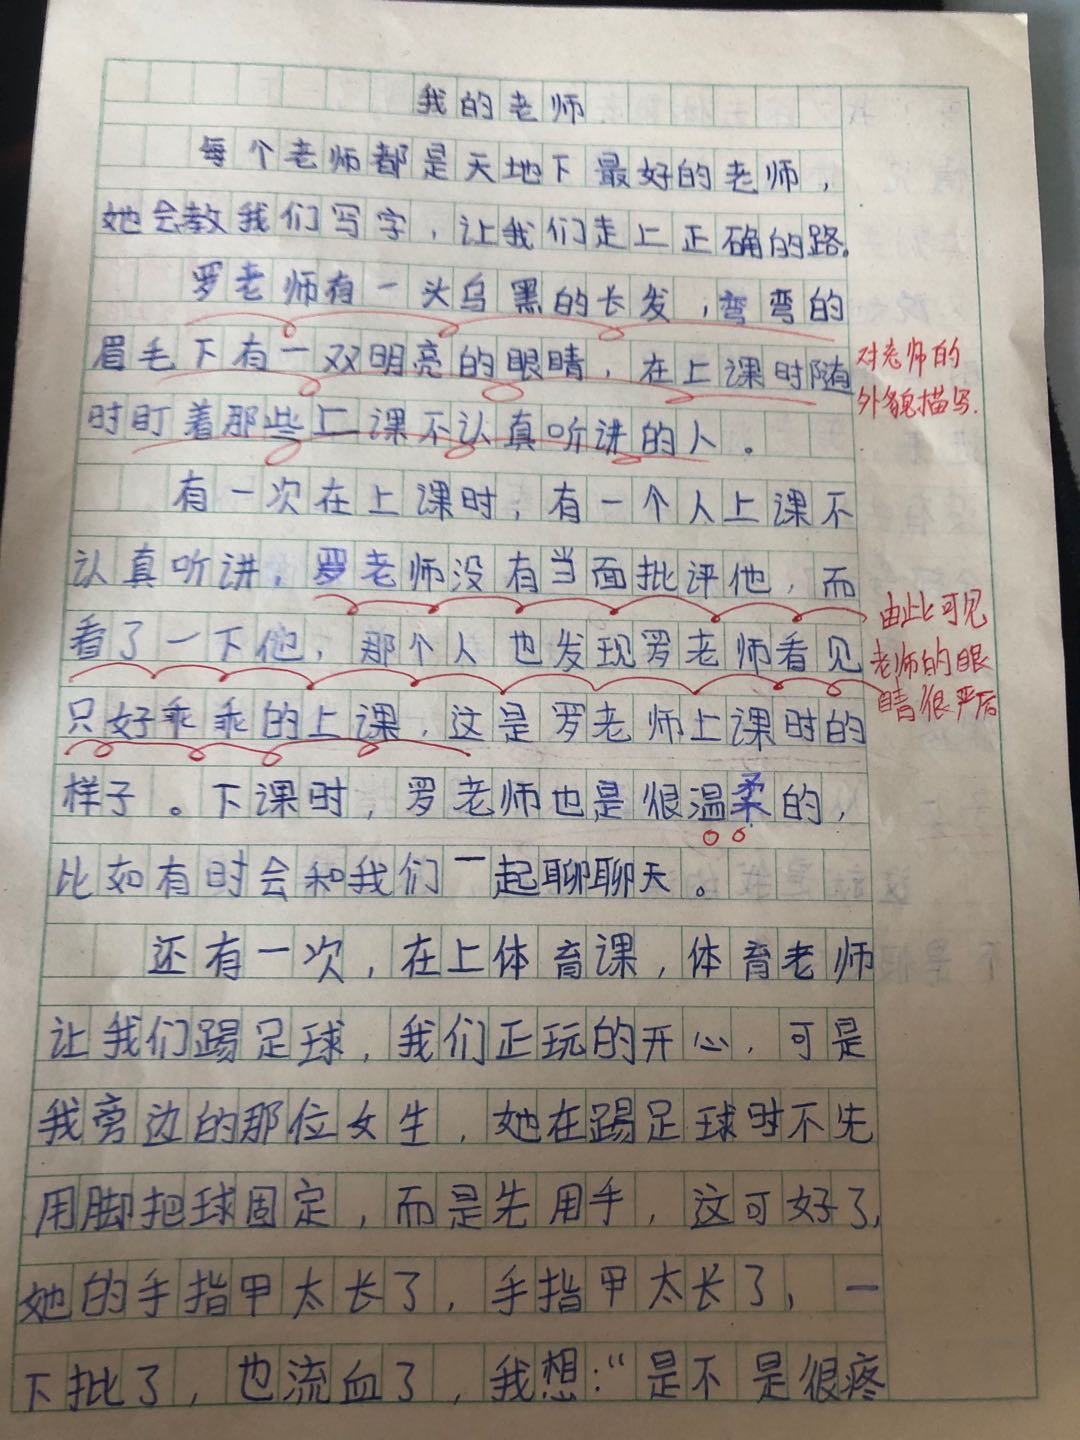 我的老师
每个老师都是天地下最好的老师，
她会教我们写字，让我们走上正确的路。
罗老师有一头乌黑的长发，弯弯的
眉毛下有一双明亮的眼睛，在上课时随
时盯着那些上课不认真听讲的人。
对老师的
外貌描写.
有一次在上课时，有一个人上课不
认真听讲，罗老师没有当面批评他，而
看了一下他，那个人也发现罗老师看见
只好乖乖的上课，这是罗老师上课时的
由此可见
老师的眼
睛很严厉
样子。下课时，罗老师也是很温柔的，
比如有时会和我们一起聊聊天。
还有一次，在上体育课，体育老师
让我们踢足球，我们正玩的开心，可是
我旁边的那位女生，她在踢足球时不先
用脚把球固定，而是先用手，这可好了，
她的手指甲太长了，手指甲太长了，一
下批了，也流血了，我想：“是不是很疼